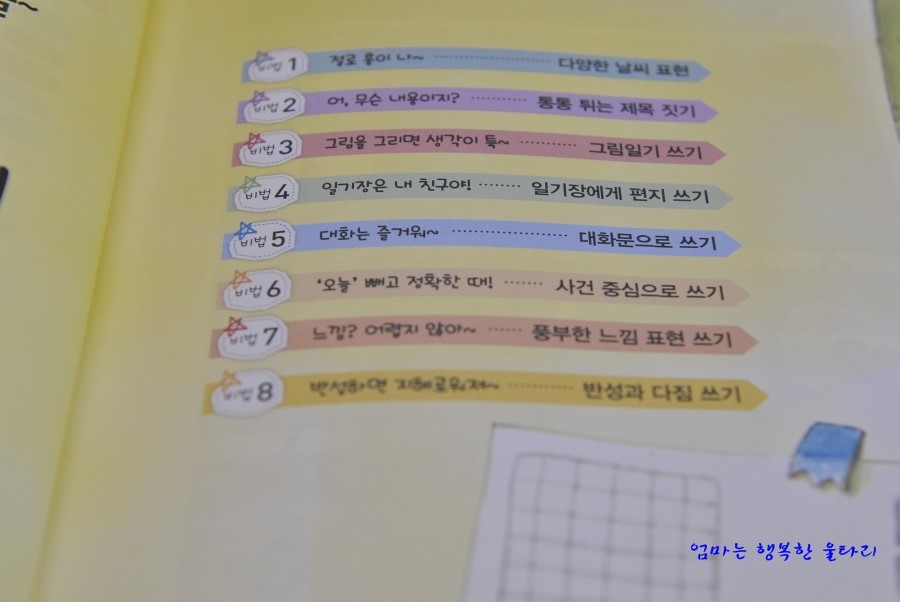 비법 1 절로 흥이 나~ ························ 다양한 날씨 표현
비법 2 어, 무슨 내용이지? ··········· 통통 튀는 제목 짓기
비법 3 그림을 그리면 생각이 툭~ ··········· 그림일기 쓰기
비법 4 일기장은 내 친구야! ········ 일기장에게 편지 쓰기
비법 5 대화는 즐거워~ ······················ 대화문으로 쓰기
비법 6 '오늘' 빼고 정확한 때! ······· 사건 중심으로 쓰기
비법 7 느낌? 어렵지 않아~ ······ 풍부한 느낌 표현 쓰기
비법 8 반성하면 지혜로워져~ ············ 반성과 다짐 쓰기
엄마는 행복한 울타리